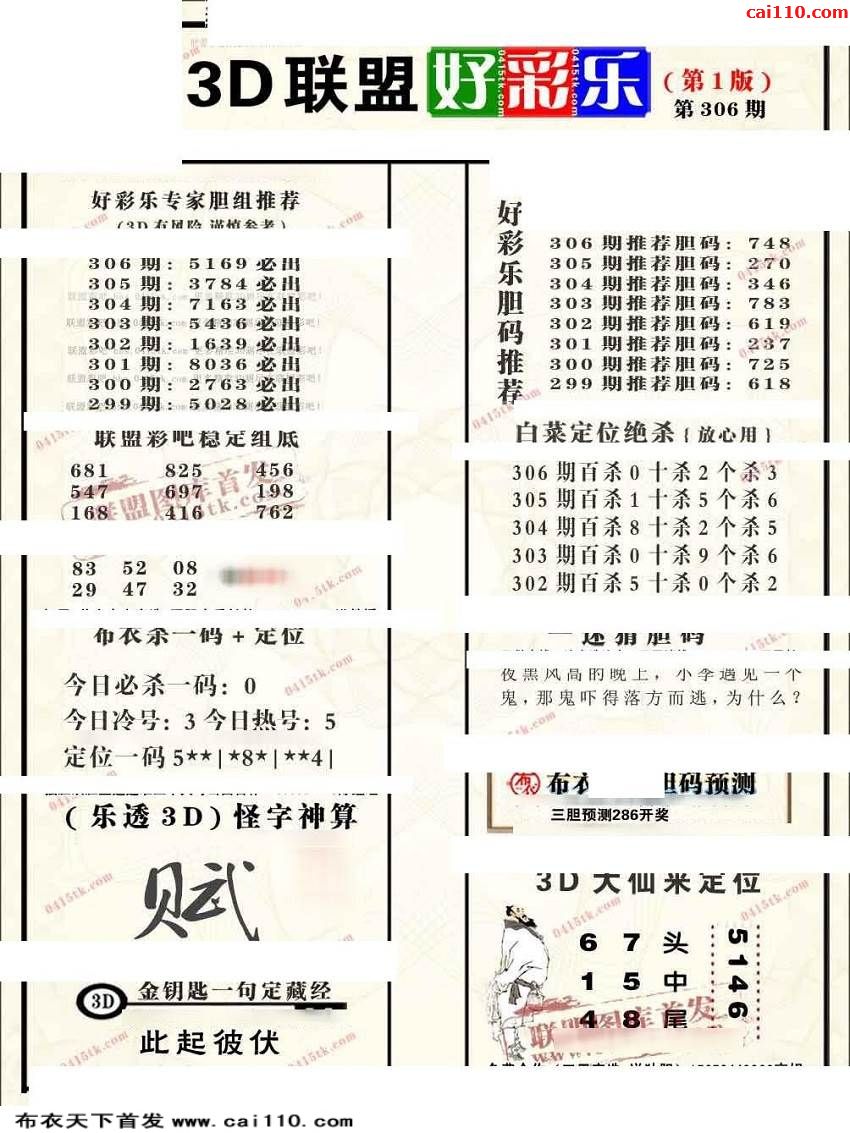 cai110.com
3D联盟好彩乐
(第1版)
第306期
好彩乐专家胆组推荐
(3D有风险 谨慎参考)
306期: 5169必出
305期: 3784必出
304期: 7163必出
303期: 5436必出
302期: 1639必出
301期: 8036必出
300期: 2763必出
299期: 5028必出
联盟彩吧稳定组底
681 825 456
547 697 198
168 416 762
83 52 08
29 47 32
布衣杀一码+定位
今日必杀一码: 0
今日冷号: 3 今日热号: 5
定位一码5**|*8*|**4|
(乐透3D)怪字神算
赋
3D 金钥匙一句定藏经
此起彼伏
好彩乐胆码推荐
306期推荐胆码: 748
305期推荐胆码: 270
304期推荐胆码: 346
303期推荐胆码: 783
302期推荐胆码: 619
301期推荐胆码: 237
300期推荐胆码: 725
299期推荐胆码: 618
白菜定位绝杀{放心用}
306期百杀0十杀2个杀3
305期百杀1十杀5个杀6
304期百杀8十杀2个杀5
303期百杀0十杀9个杀6
302期百杀5十杀0个杀2
一谜猜胆码
夜黑风高的晚上, 小李遇见一个
鬼,那鬼吓得落方而逃,为什么?
布衣 胆码预测
三胆预测286开奖
3D大仙来定位
6 7 头
1 5 中
4 8 尾
5146
联盟图库首发
0415tk.com
布衣天下首发 www.cai110.com